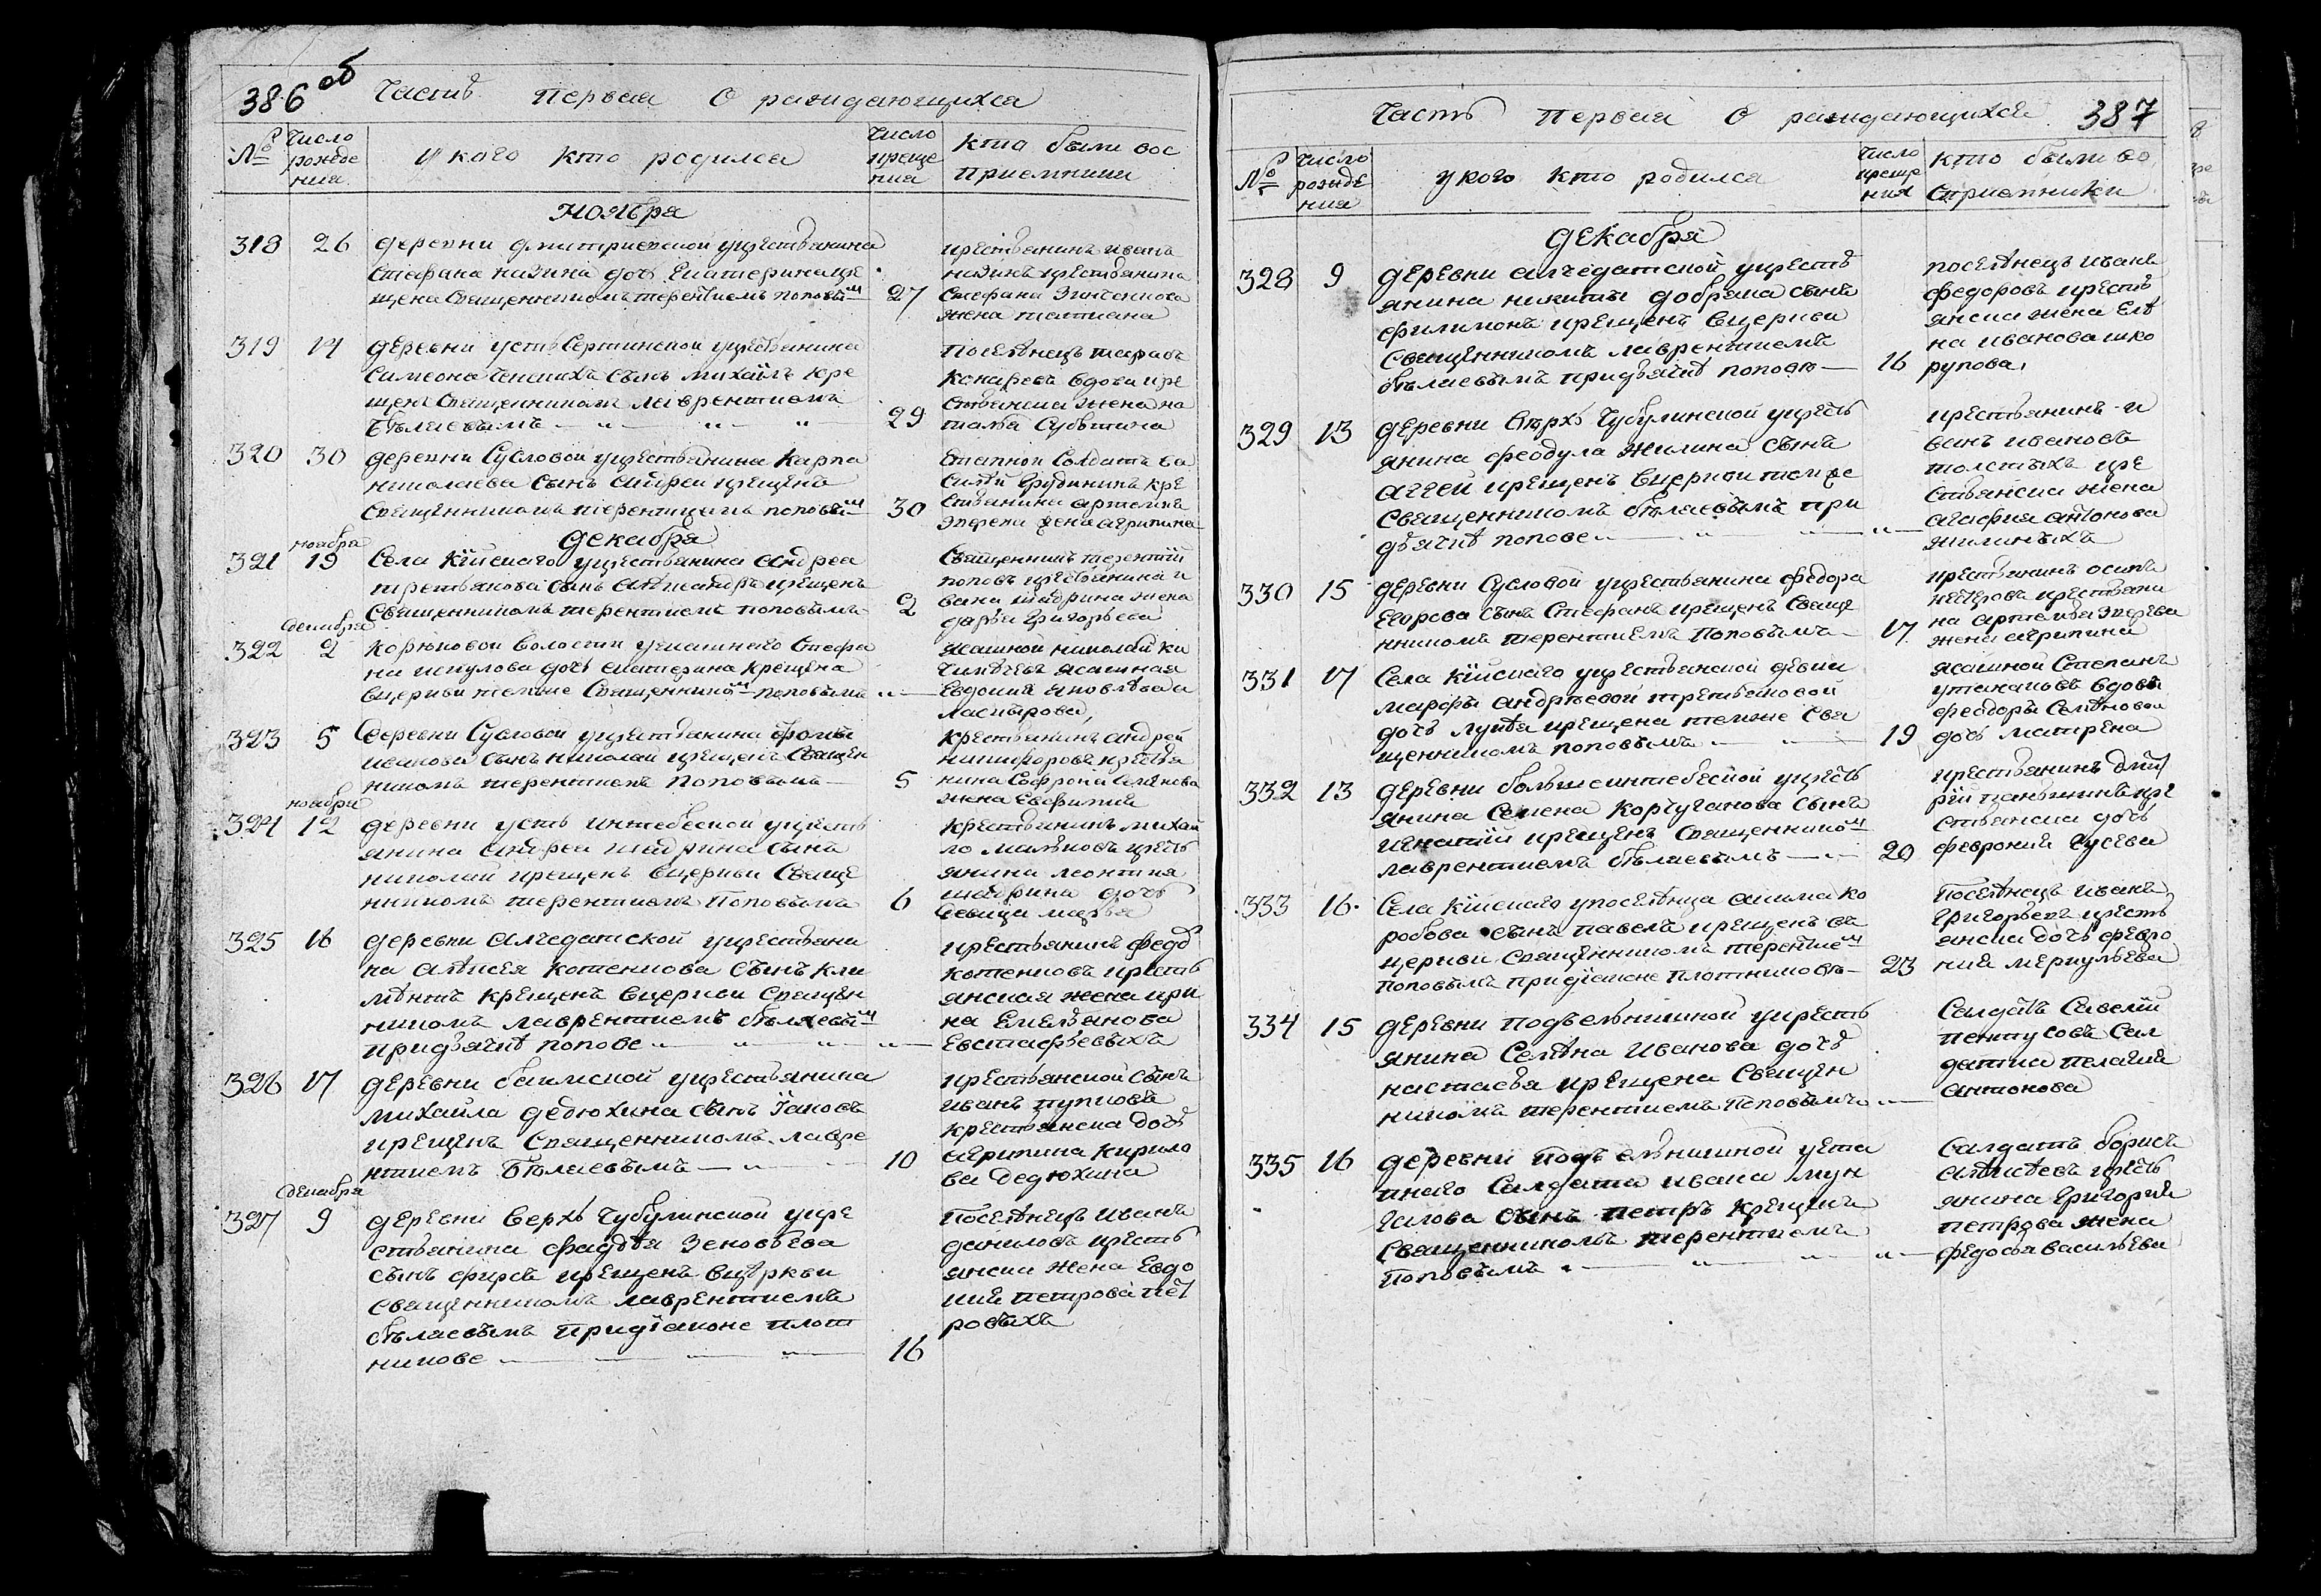 386 об
Часть первая О раждающихся
№ Число рожде ния У кого кто родился Число креще ния Кто были вос приемники
Ноября
318 26 деревни дмитриевской укрестьянина
Стефана дочь Екатерина кре
щена Священникомъ терентиемъ поповымъ 27
крестьянинъ иванъ
крестьянина
Стефана
жена татиана
319 14 деревни усть Сертинской укрестьянина
Симеона сынъ михаилъ кре
щенъ Священникомъ лаврентиемъ
Бѣлаевымъ 29
Поселѣнецъ тарасъ
вдова кре
стьянска жена на
талья
320 30 деревни Сусловой укрестьянина карпа
николаева сынъ андреи крещенъ
Священникомъ терентиемъ поповымъ 30
Солдатъ ва
силѣй грудининъ кре
стьянина артемия
жена агрипина
Декабря
ноября
321 19 Села Кійскаго укрестьянина андреа
третьякова сынъ александръ крещенъ
Священникомъ терентиемъ поповымъ 2
Священникъ терентій
поповъ крестьянина и
вана шадрина жена
дарья григорьева
декабря
322 2 волости уясашнаго Стефа
на дочь екатерина крещена
вцеркви темже Священникомъ поповымъ
ясашной николай ки
ясашная
Евдокия яковлѣва

323 5 деревни Сусловой укрестьянина фомы
иванова сынъ николаи крещенъ Священ
никомъ терентиемъ поповымъ 5
крестьянинъ андрей
никифоровъ крестья
нина Софрона
жена Евфимия
ноября
324 12 деревни усть интебеской укресть
янина андреа шадрина сынъ
николаи крещенъ вцеркви Свяще
нникомъ терентиемъ поповымъ 6
крестьянинъ михай
ло кресть
янина леонтия
шадрина дочь
девица марья
325 16 деревни алчедатской укрестьяни
на алѣксея котенкова сынъ кли
мѣнтъ крещенъ вцеркви Священ
никомъ лаврентиемъ бѣляевымъ
придьячкѣ попове
крестьянинъ федо
котенковъ кресть
янская жена ири
на Емельянова
Евстафьевыхъ
326 17 деревни баимской укрестьянина
михаила дедюхина сынъ Iаковъ
крещенъ Священникомъ лавре
нтиемъ Бѣлаевымъ 10
крестьянской сынъ
иванъ пупковъ
крестьянска дочь
агрипина кирило
ва дедюхина
декабря
327 9 деревни верхъ Чубулинской укре
стьянина фаддѣя Зеновьева
сынъ фирсъ крещенъ вцеркви
священникомъ лаврентиемъ
бѣлаевымъ придіаконе плот
никове 16
Поселѣнецъ иванъ
даниловъ кресть
янска жена Евдо
кия петрова пет
ровыхъ
Часть первая О раждающихся 387
№ Число рожде ния У кого кто родился Число креще ния кто были во сприемники
декабря
328 9 деревни алчедатской укресть
янина никиты добрына сынъ
филимонъ крещенъ вцеркви
Священникомъ лаврентиемъ
бѣлаевымъ придьячкѣ поповѣ 16
поселѣнецъ иванъ
федоровъ кресть
янска жена елѣ
на иванова шко
рупова
329 13 деревни верхъ Чубулинской укресть
янина феодула жилина сынъ
аггей крещенъ вцеркви темже
Священникомъ бѣлаевымъ при
дьячкѣ попове
крестьянинъ и
ванъ ивановъ
толстыхъ кре
стьянска жена
агафия антонова
жилиныхъ
330 15 деревни Сусловой укрестьянина федора
Егорова сынъ Стефанъ крещенъ Свяще
нникомъ терентиемъ поповымъ 17
крестьянинъ осипъ
крестьяни
на артемья
жена агрипина
331 17 Села Кійскаго укрестьянской девки
марфы андрѣевой третьяковой
дочь крещена темже свя
щенникомъ поповымъ 19
ясашной Степанъ
вдовы
феодоры Семѣновой
дочь матрена
332 13 деревни большеинтебеской укресть
янина Семена корчуганова сынъ
игнатій крещенъ Священникомъ
лаврентиемъ бѣлаевымъ 20
крестьянинъ дмит
рій кре
стьянска дочь
феврония гусева
333 16 Села Кійскаго упоселѣнца акима ко
робова сынъ павелъ крещенъ въ
церкви Священникомъ терентием
поповымъ придіаконе плотниковѣ 23
Поселѣнецъ иванъ
григорьевъ кресть
янска дочь февро
ния меркульева
334 15 деревни подъельнишной укресть
янина Семѣна Иванова дочь
настасья крещена Священ
никомъ терентиемъ поповымъ
Салдатъ Савелій
пентусовъ Сал
датка пелагия
антонова
335 16 деревни подъельнишной уэта
пнаго Салдата ивана мун
галова сынъ петръ крещенъ
Священникомъ терентиемъ
поповымъ
Салдатъ борисъ
алѣксѣевъ кресть
янина григория
петрова жена
федосья васильева